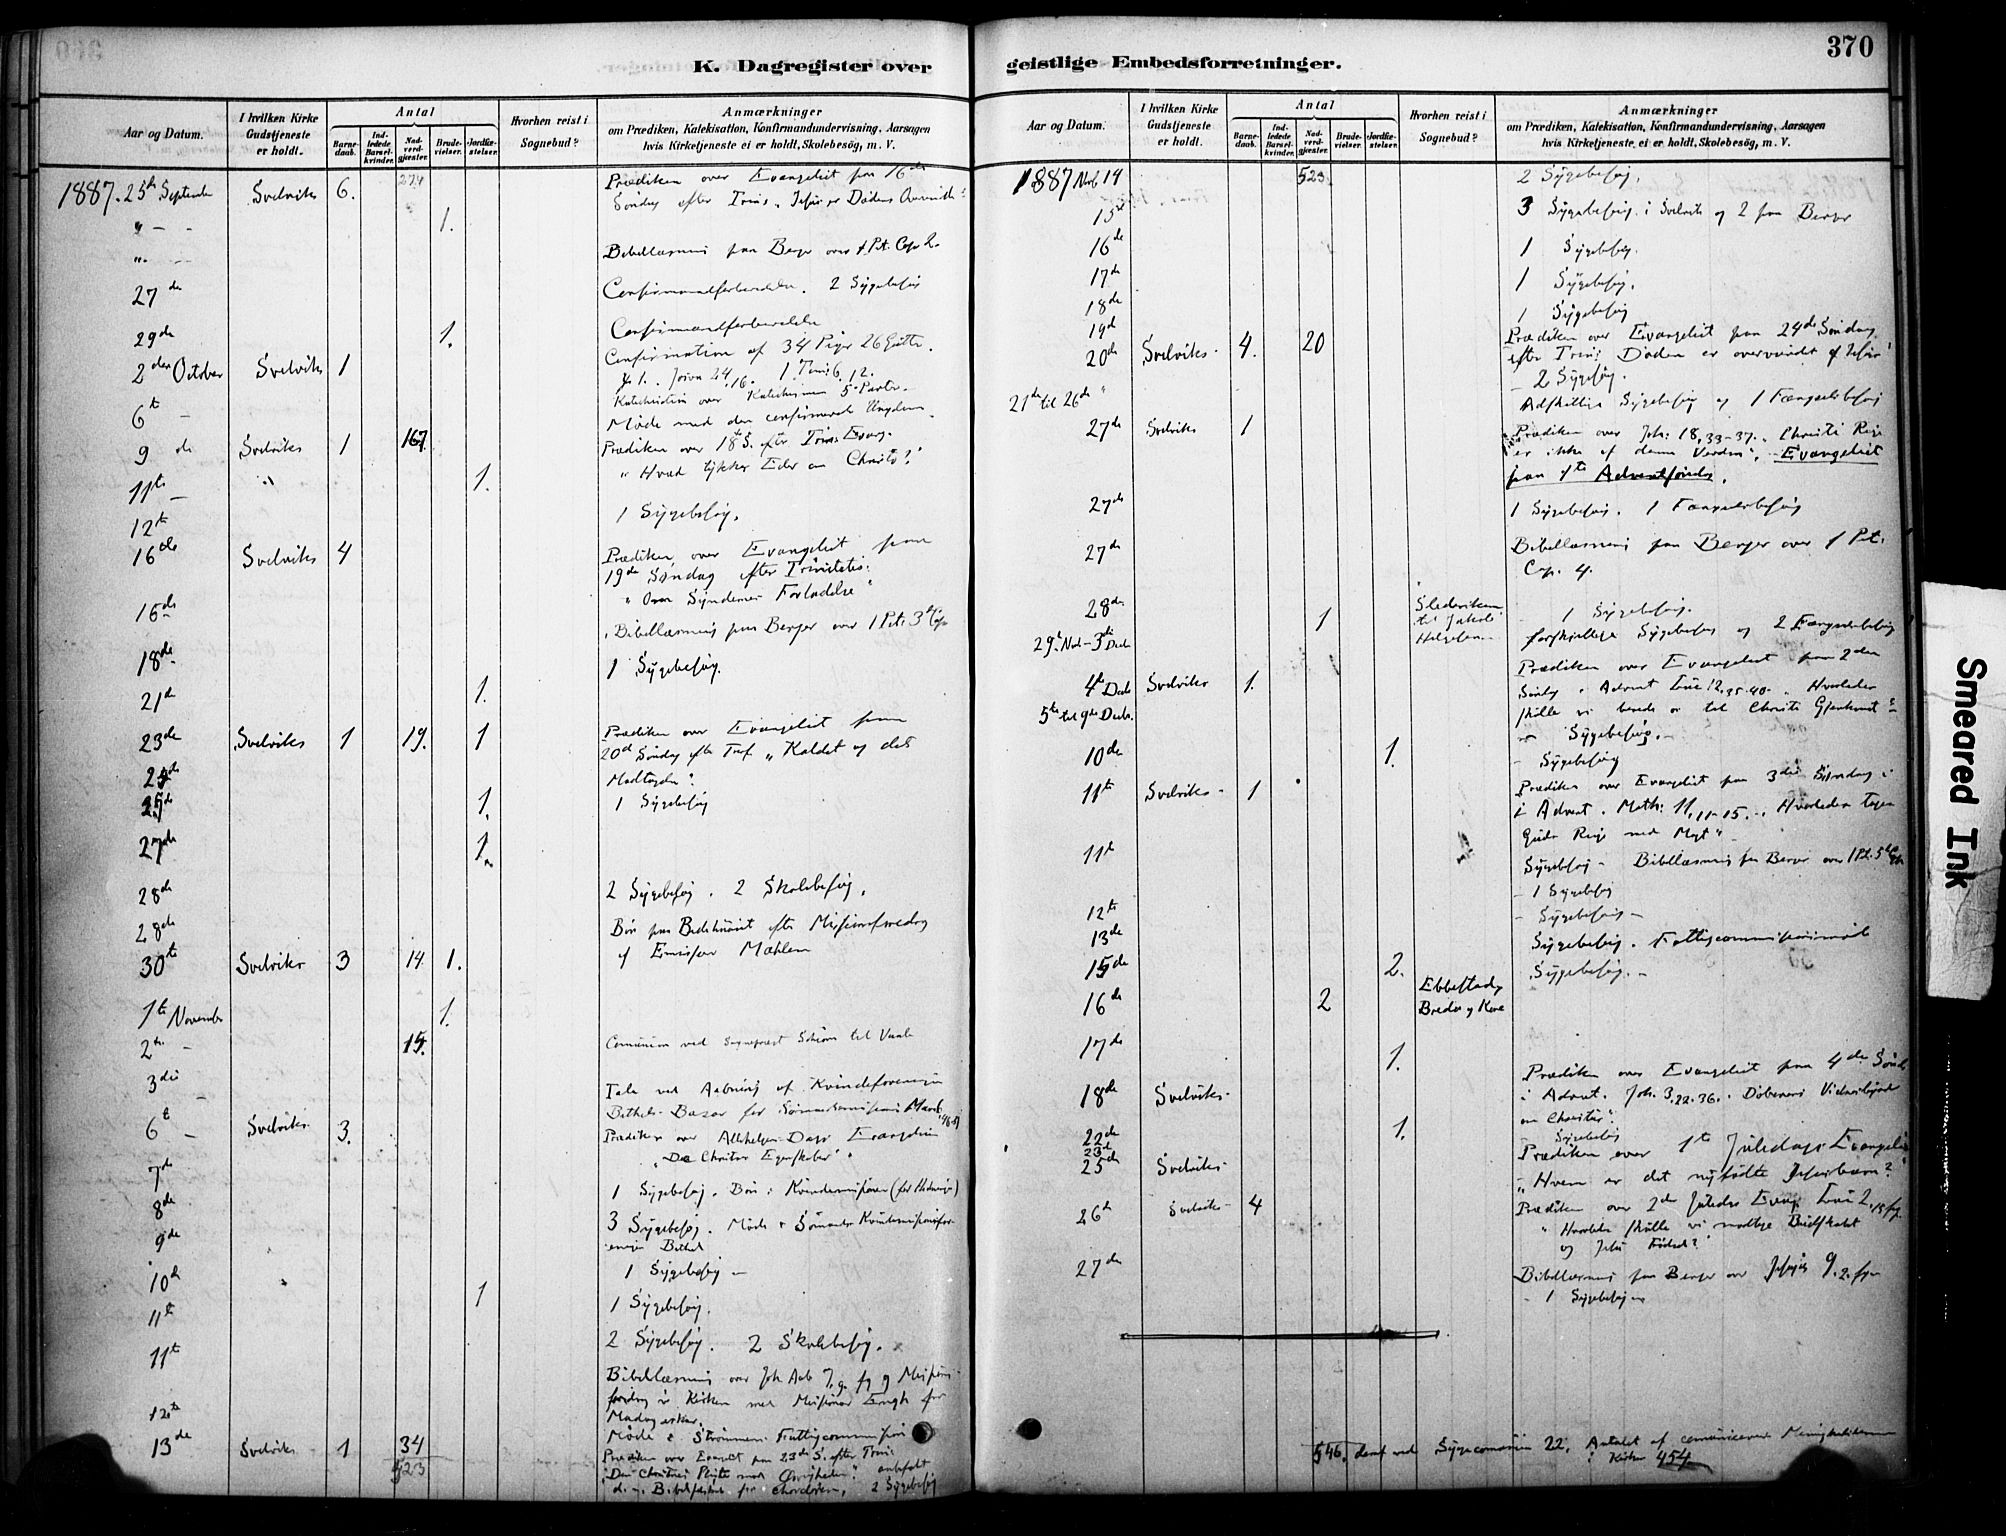 370
K. Dagregister over
geistlige Embedsforretninger.
Aar og Datum.
I hvilken Kirke Gudstjeneste er holdt.
Antal
Barne-daab.
Ind-ledede Barsel-kvinder.
Nad-verd-gjæster.
Brude-vielser.
Jordfæ-stelser.
Hvorhen reist i Sognebud?
Anmærkninger
om Prædiken, Katekisation, Konfirmandundervisning, Aarsagen
hvis Kirketjeneste ei er holdt, Skolebesøg, m. V.
1887. 25de September Svelviks 6. 274 Prædiken over Evangeliet paa 16de
Søndag efter Trinit.
" - - 1.
" - - Bibellæsning paa Berger over 1 Pet. Cap 2.
27de Confirmandforberedelse. 2 Sygebesøg
29de 1. Confirmandforberedelse
2den October Svelviks 1 Confirmation af 34 Piger 26 Gutter.
Josva 24,16. 1 Tim: 6, 12.
Katechisation over Katechismen 5te Part.
6te - Møde med den confirmerede Ungdom.
9de Svelviks 1 167 Prædiken over 18de S. efter Trin: Evang.
" Hvad tykkes Eder om Christo?"
11te - " 1.
12te 1 Sygebesøg.
16de Svelviks 4 Prædiken over Evangeliet paa
19de Søndag efter Trinitatis:
" Om Syndernes Forladelse"
16de Bibellæsning paa Berger over 1 Pet: 3de Cap
18de 1 Sygebesøg.
21de 1.
23de Svelviks 1 19. 1 Prædiken over Evangeliet paa
20de Søndag efter Tref. " Kaldet og dets
Modtagelse".
25de
1. 1 Sygebesøg
27de 1.
28de 2 Sygebesøg. 2 Skolebesøg.
28de Bøn paa Bedehuset efter Missionsforedrag
af Emissær Mæhlen
30te Svelviks 3 14. 1.
1te November 1.
2den - 15. Comunion ved Sognepræst Schiøn til Vaale
3die - Tale ved Aabning af Kvindeforeningen
Bethels Bazar for Sømandsmissionen
6te - Svelviks 3. Prædiken over Allehelgens Dags Evangelium
" De Christnes Egenskaber"
7de 1 Sygebesøg. Bøn i Kvindemissionen
8de 3 Sygebesøg. Møde i Sømands Kvindemissionsfor-
eningen Bethel
9de 1 Sygebesøg -
10de 1 1 Sygebesøg.
11te 2 Sygebesøg. 2 Skolebesøg.
11te Bibellæsning over Joh Aab 7,9. fg og Missions-
foredrag i Kirken med Missionær Engh fra
Madagaskar.
12te Møde i Strømmens Fattigcommission
13de Svelviks 1 34 Prædiken over Evangeliet paa 23de S. efter Trin:
523 "Den Christnes Pligter mod Øvrigheden" anbefalt
2 Sygebesøg
Aar og Datum.
I hvilken Kirke Gudstjeneste er holdt.
Antal
Barne-daab.
Ind-ledede Barsel-kvinder.
Nad-verd-gjæster.
Brude-vielser.
Jordfæ-stelser.
Hvorhen reist i Sognebud?
Anmærkninger
om Prædiken, Katekisation, Konfirmandundervisning, Aarsagen
hvis Kirketjeneste ei er holdt, Skolebesøg, m. V.
1887 Novb 14 523 2 Sygebesøg.
15de 3 Sygebesøg i Svelvik og 2 paa Berger
16de 1 Sygebesøg.
17de 1 Sygebesøg.
18de 1 Sygebesøg
19de
20de Svelviks 4. 20 Prædiken over Evangeliet paa 24de Søndag
efter Trin: Døden er overvundet af Jesus"
- 2 Sygebesøg.
21de til 26de Adskillige Sygebesøg og 1 Fængselsbesøg
27de Svelviks 1 Prædiken over Joh: 18, 33-37. Christi Rige
er ikke af denne Verden". Evangeliet
paa 1te Adventsøndag.
27de 1 Sygebesøg. 1 Fængselsbesøg
27de Bibellæsning paa Berger over 1 Pet.
Cap. 4.
28de 1 til Jakob 1 Sygebesøg.
29de Nov - 3die Decb forskjellige Sygebesøg og 2 Fængselsbesøg
4de Decb Svelviks 1. Prædiken over Evangeliet paa 2den
Søndag i Advent Luc 12, 35-40. " Hvorledes
skulle vi berede os til Christi Gjenkomst"
5te til 9de Decbr. Sygebesøg. -
10de 1. Sygebesøg
11te Svelviks 1 Prædiken over Evangeliet paa 3die Søndag i
i Advent. Math: 11, 11-15. Hvorledes tages
Guds Rige med Magt"
11te Sygebesøg - Bibellæsning paa Berger over 1 Pt. 5te Cap
- 1 Sygebesøg
12te - Sygebesøg -
13de Sygebesøg. Fattigcommissionsmøde
15de 2. Sygebesøg. -
16de 2 Ebbestad,
Bredor og Kone
17de 1.
18de Svelviks Prædiken over Evangeliet paa 4de Sønd
i Advent. Joh. 3, 22-36. Døberens Vidnesbyrd
om Christus".
22de 1. Sygebesøg
23de
25de Svelviks Prædiken over 1te Juledags Evangeliu
" Hvem er det nyfødte Jesusbarn?"
26de Svelviks 4 Prædiken over 2den Juledags Evang. Luc 2, 15 fg.
" Hvorledes skulle vi modtage Budskabet
og Jesu Fødsel?"
27de Bibellæsning paa Berger over Jesajas 9, 2. fgn
- 1 Sygebesøg
546. deraf ved Sygecomunion 22. Antalet af comunicerer Menighedslemmer
i Kirken 454
Smeared Ink